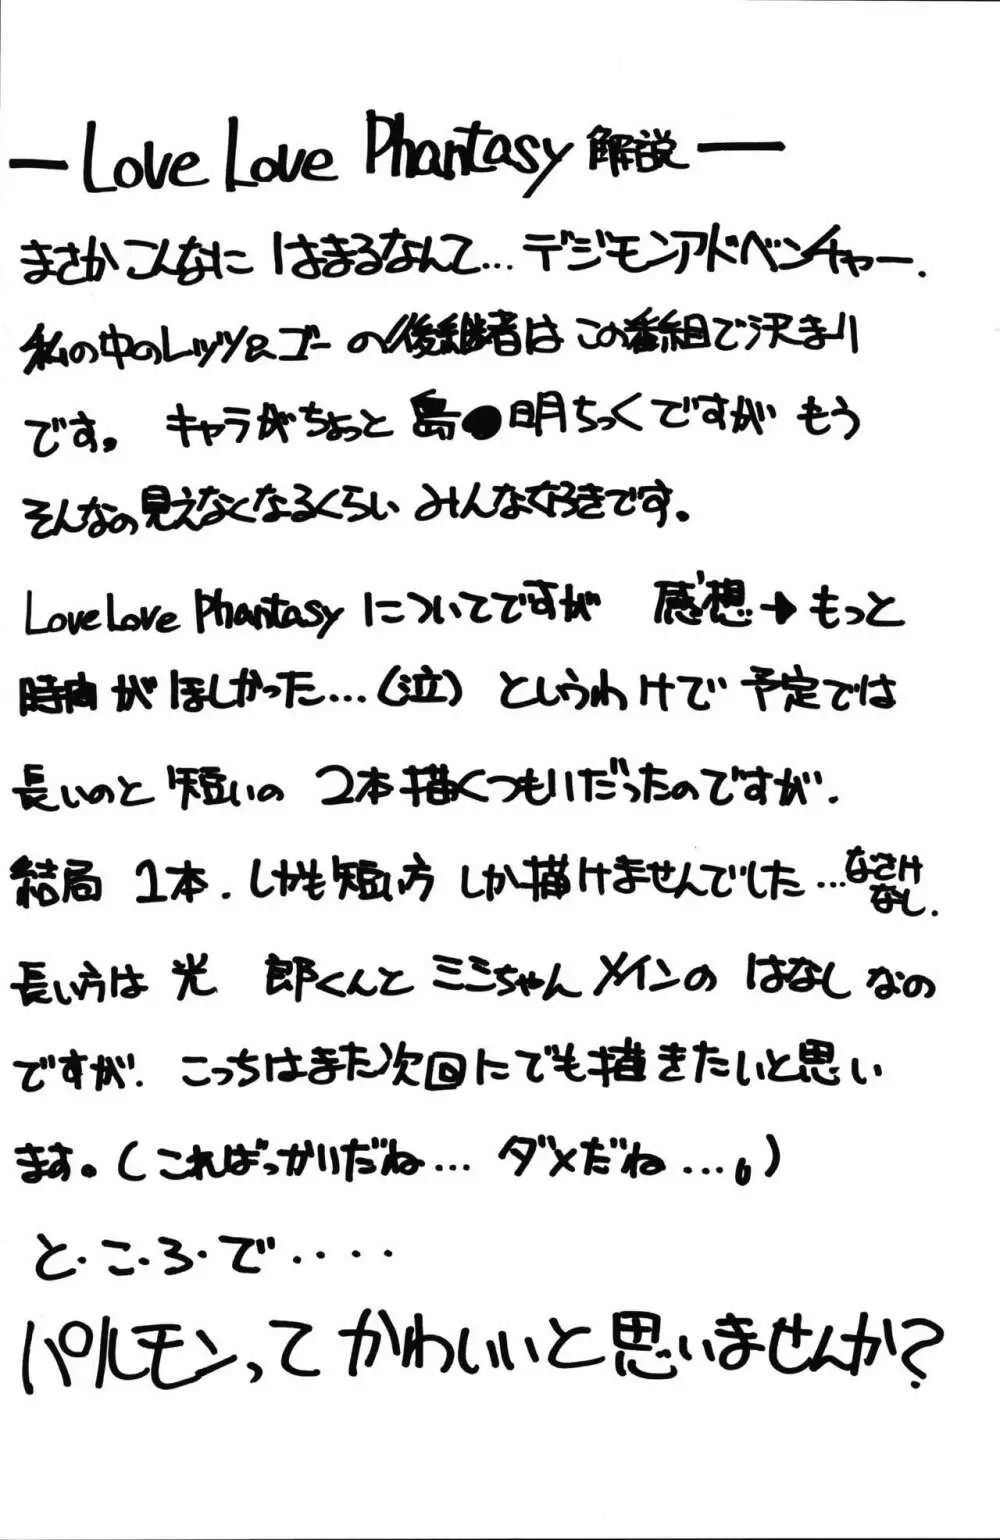 ーLove Love Phantasy 解説ー
まさかこんなに はまるなんて… デジモンアドベンチャー.
私の中のレッツ&ゴーの後継者はこの番組で決まり
です。 キャラがちょっと 島●明ちっくですが もう
そんなの見えなくなるくらい みんな好きです。
LoveLove Phantasy についてですが 感想→もっと
時間がほしかった…(泣) というわけで 予定では
長いのと 短いの 2本描くつもりだったのですが.
結局 1本.しかも短い方 しか描けませんでした…なさけ
なし.
長い方は 光 郎くんと ミミちゃん メインの はなし なの
ですが. こっちはまた次回にでも描きたいと思い
ます。(こればっかりだね… ダメだね…。)
と・こ・ろ・で・・・・
パルモンって かわいいと思いませんか?